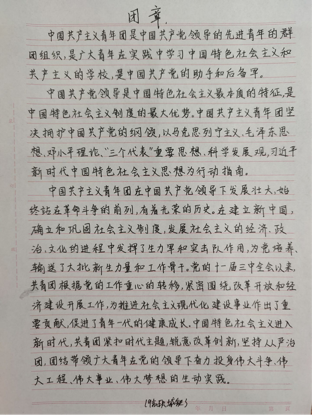 团章
中国共产主义青年团是中国共产党领导的先进青年的群
团组织,是广大青年在实践中学习中国特色社会主义和
共产主义的学校,是中国共产党的助手和后备军。
中国共产党领导是中国特色社会主义最本质的特征,是
中国特色社会主义制度的最大优势。中国共产主义青年团坚
决拥护中国共产党的纲领,以马克思列宁主义、毛泽东思
想、邓小平理论、“三个代表”重要思想、科学发展观、习近平
新时代中国特色社会主义思想为行动指南。
中国共产主义青年团在中国共产党领导下发展壮大,始
终站在革命斗争的前列,有着光荣的历史。在建立新中国,
确立和巩固社会主义制度,发展社会主义的经济、政
治、文化的进程中发挥了生力军和突击队作用,为党培养、
输送了大批新生力量和工作骨干。党的十一届三中全会以来,
共青团根据党的工作重心的转移,紧密围绕改革开放和经
济建设开展工作,为推进社会主义现代化建设事业作出了重
要贡献,促进了青年一代的健康成长。中国特色社会主义进入
新时代,共青团紧扣时代主题,锐意改革创新,坚持从严治
团,团结带领广大青年在党的领导下奋力投身伟大斗争、伟
大工程、伟大事业、伟大梦想的生动实践。